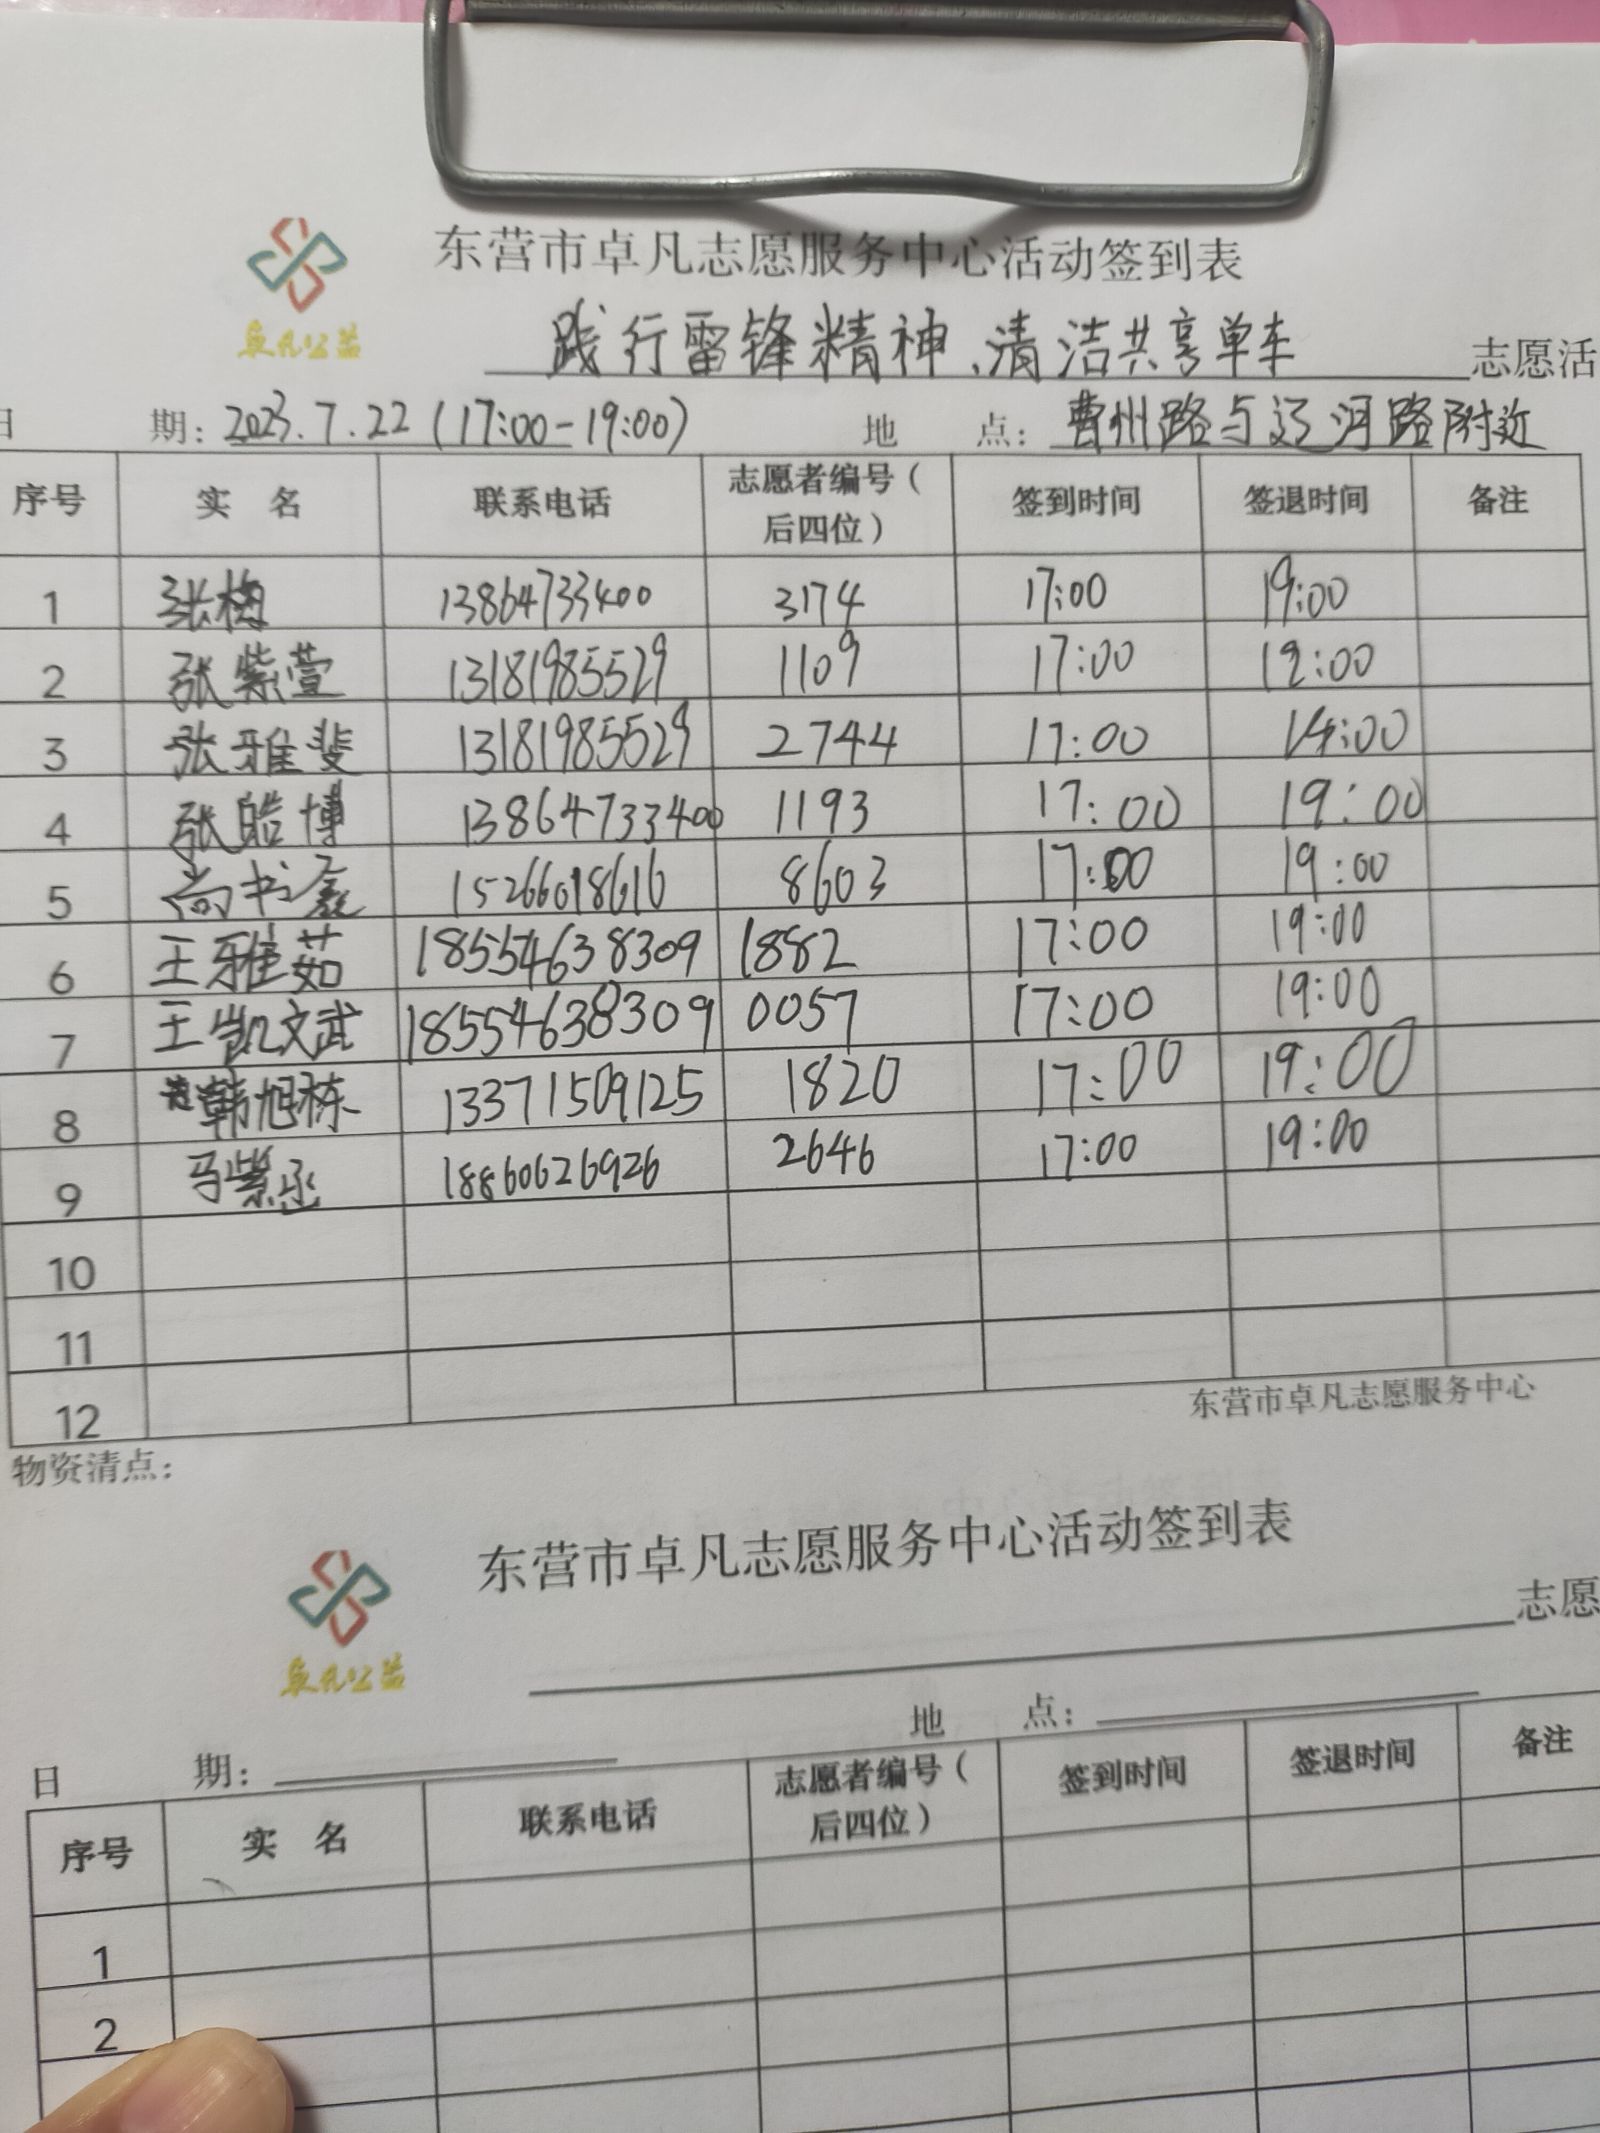 东营市卓凡志愿服务中心活动签到表
卓凡公益
践行雷锋精神、清洁共享单车 志愿活
日 期：2023.7.22（17:00-19:00） 地 点：曹州路与辽河路附近
序号 实 名 联系电话 志愿者编号（后四位） 签到时间 签退时间 备注
1 张梅 13864733400 3174 17:00 19:00
2 张紫萱 13181985529 1109 17:00 19:00
3 张雅斐 13181985529 2744 17:00 19:00
4 张皓博 13864733400 1193 17:00 19:00
5 尚书鑫 15266018616 8603 17:00 19:00
6 王雅茹 18554638309 1882 17:00 19:00
7 王凯文武 18554638309 0057 17:00 19:00
8 韩旭栋 13371509125 1820 17:00 19:00
9 马紫丞 18860626926 2646 17:00 19:00
10
11
12
东营市卓凡志愿服务中心
物资清点：
东营市卓凡志愿服务中心活动签到表
卓凡公益
志愿
日 期： 地 点：
序号 实 名 联系电话 志愿者编号（后四位） 签到时间 签退时间 备注
1
2